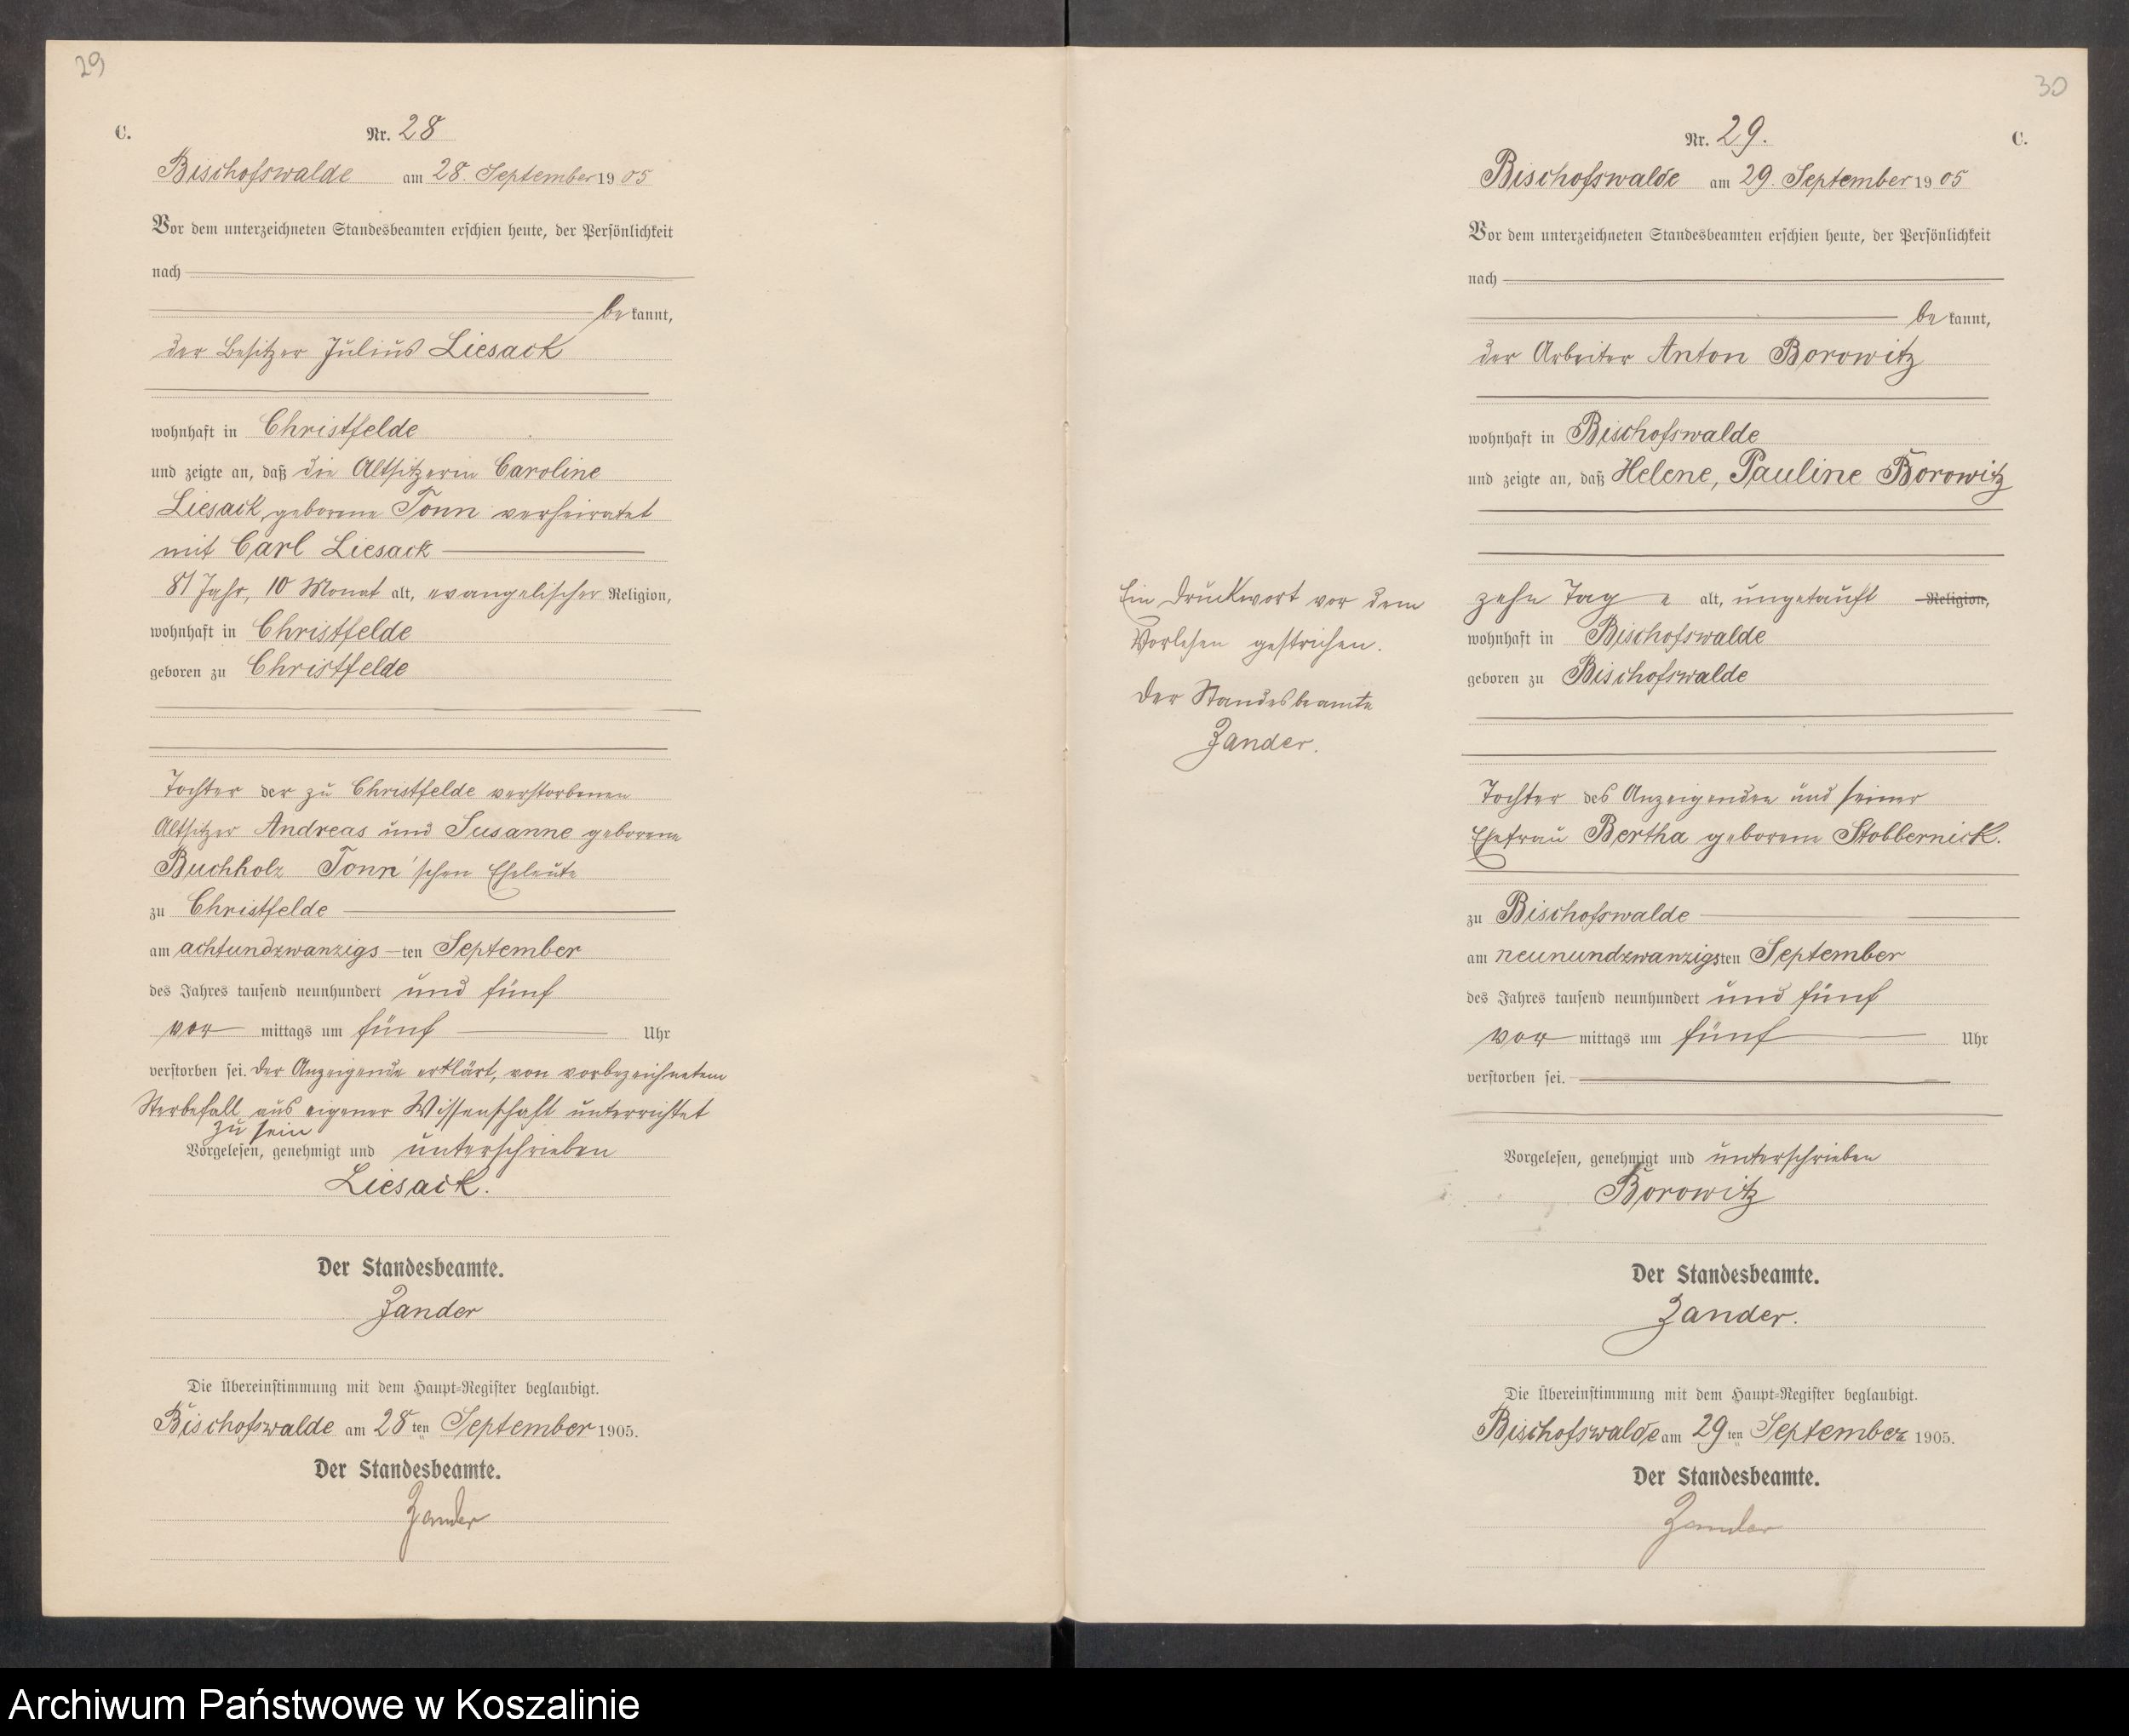 29
C.
Nr. 28
Bischofswalde am 28. September 1905
Vor dem unterzeichneten Standesbeamten erschien heute, der Persönlichkeit
nach
bekannt,
der Besitzer Julius Liesack
wohnhaft in Christfelde
und zeigte an, daß die Altsitzerin Caroline
Liesack, geborene Tonn verheiratet
mit Carl Liesack
81 Jahr, 10 Monat alt, evangelischer Religion,
wohnhaft in Christfelde
geboren zu Christfelde
Tochter der zu Christfelde verstorbenen
Altsitzer Andreas und Susanne geborene
Buchholz Tonn'schen Eheleute
zu Christfelde
am achtundzwanzigs-ten September
des Jahres tausend neunhundert und fünf
vor mittags um fünf Uhr
verstorben sei. Der Anzeigende erklärt, von vorbezeichnetem
Sterbefall aus eigener Wissenschaft unterrichtet
zu sein
Vorgelesen, genehmigt und unterschrieben
Liesack.
Der Standesbeamte.
Zander
Die Übereinstimmung mit dem Haupt-Register beglaubigt.
Bischofswalde am 28ten September 1905.
Der Standesbeamte.
Zander
30
Nr. 29.
C.
Bischofswalde am 29. September 1905
Vor dem unterzeichneten Standesbeamten erschien heute, der Persönlichkeit
nach
bekannt,
der Arbeiter Anton Borowitz
wohnhaft in Bischofswalde
und zeigte an, daß Helene, Pauline Borowitz
zehn Tage alt, ungetauft Religion,
wohnhaft in Bischofswalde
geboren zu Bischofswalde
Ein Druckwort vor dem
Vorlesen gestrichen.
Der Standesbeamte
Zander.
Tochter des Anzeigenden und seiner
Ehefrau Bertha geborene Stobbernick.
zu Bischofswalde
am neunundzwanzigsten September
des Jahres tausend neunhundert und fünf
vor mittags um fünf Uhr
verstorben sei.
Vorgelesen, genehmigt und unterschrieben
Borowitz
Der Standesbeamte.
Zander.
Die Übereinstimmung mit dem Haupt-Register beglaubigt.
Bischofswalde am 29ten September 1905.
Der Standesbeamte.
Zander
Archiwum Państwowe w Koszalinie